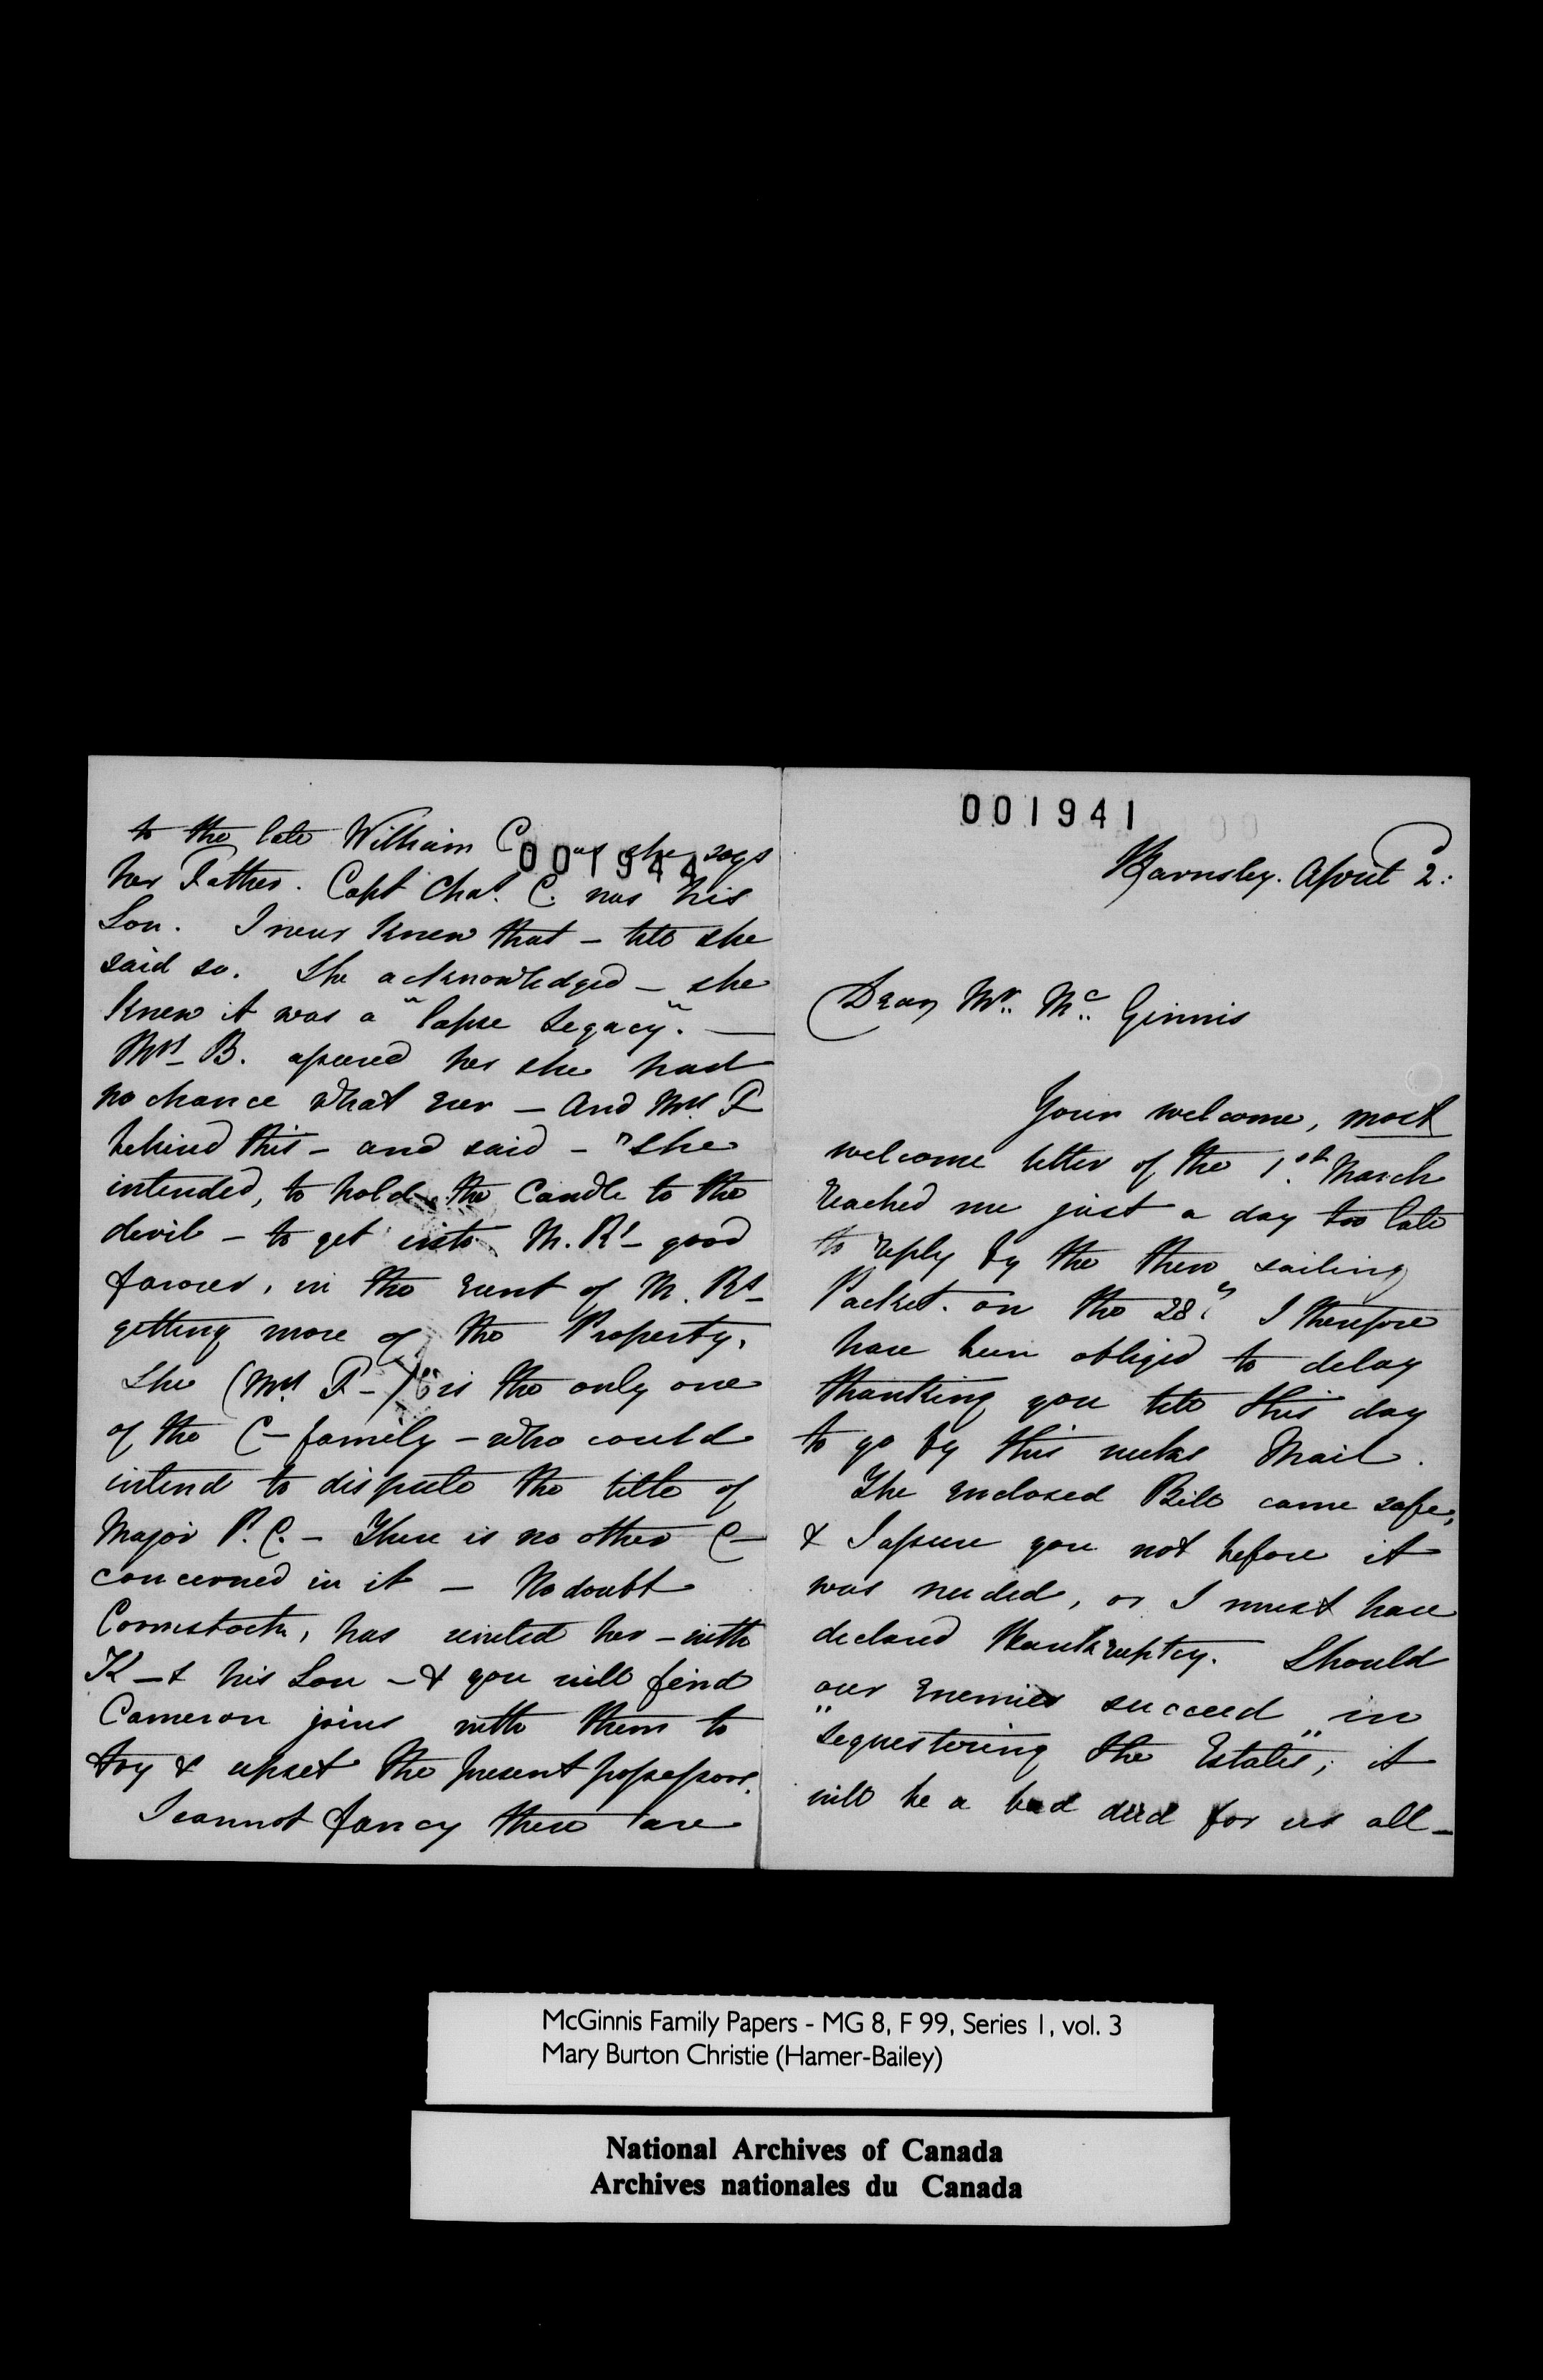 to the late William C as she says
001944
her Father. Capt Chas. C. was his
Son. I never knew that - till she
said so. She acknowledged - she
knew it was a "lapse Legacy". —
Mrs B. assured her she had
no chance what ever - And Mrs P
behind this - and said - "she
intended, to hold the Candle to the
devil - to get into M. Rs - good
favour, in the event of M. Rs -
getting more of the Property.
She (Mrs P -) is the only one
of the C - family - who could
intend to dispute the title of
Major P. C. - There is no other C -
concerned in it - No doubt
Coomstock, has united her - with
K - & his Son - & you will find
Cameron joins with them to
try & upset the present possessor.
I cannot fancy there are
001941
Barnsley. April 2:
Dear Mr. Mc. Ginnis
Your welcome, most
welcome letter of the 1st. March
reached me just a day too late
to reply by the then sailing
Packet. on the 28. I therefore
have been obliged to delay
thanking you till this day
to go by this weeks Mail.
The enclosed Bill came safe,
& I assure you not before it
was needed, or I must have
declared Bankruptcy. Should
our Enemies succeed in
"sequestering the Estates"; it
will be a bad deed for us all -
McGinnis Family Papers - MG 8, F 99, Series 1, vol. 3
Mary Burton Christie (Hamer-Bailey)
National Archives of Canada
Archives nationales du Canada